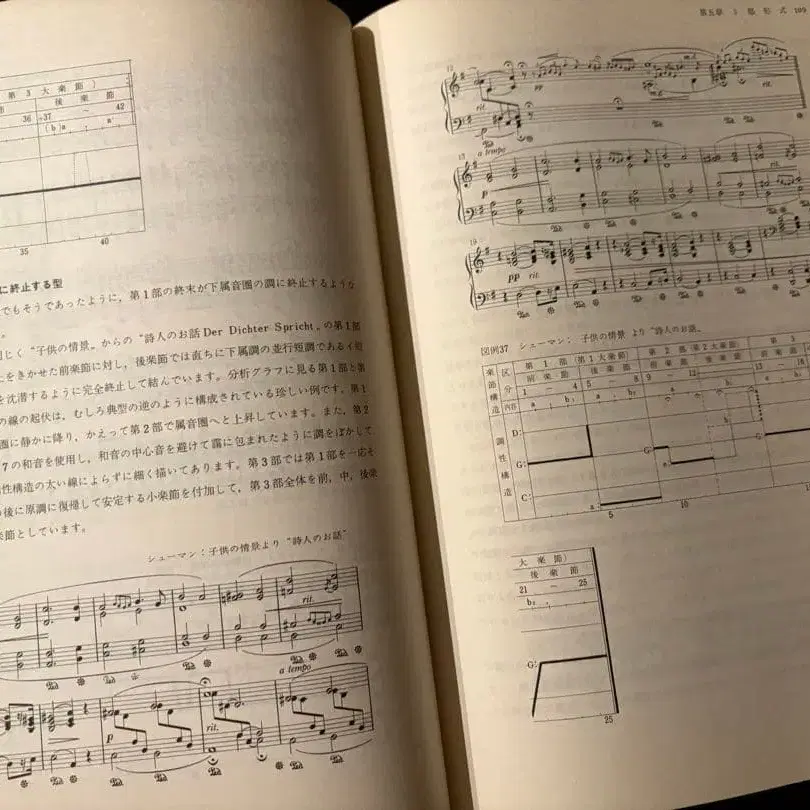 第 3 大 楽 節 )
後 楽 節
36 37 ~ 42
(b)a a'
35 40
に終止する型
でもそうであったように，第1部の終末が下属音圏の調に終止するような
。
同じく“子供の情景„からの“詩人のお話 Der Dichter Spricht„の第1部
をきかせた前楽節に対し，後楽節では直ちに下属調の並行短調であるイ短
を沈潜するように完全終止して結んでいます。分析グラフに見る第1部と第
の線の起伏は，むしろ典型の逆のように構成されている珍しい例です。第1
圏に静かに降り，かえって第2部で属音圏へと上昇しています。また，第2
7の和音を使用し，和音の中心音を避けて靄に包まれたように調をぼかして
性構造の太い線によらずに細く描いてあります。第3部では第1部を一応そ
の後に原調に復帰して安定する小楽節を付加して，第3部全体を前，中，後楽
楽節としています。
シューマン：子供の情景より“詩人のお話”
rit.
a tempo
p rit.
第五章 3 部 形 式 109
rit. pp rit.
p
13 a tempo
p
19
pp rit.
図例37 シューマン： 子供の情景 より“詩人のお話„
楽節構造 区分 第 1 部 (第1大楽節) 第 2 部 (第2大楽節) 第 3
前楽節 後楽節 前楽節 後楽節 前楽節
1 ~ 4 5 ~ 8 9 12 13 16
内容 a b a b
調性構造
D:
G:
C:
5 10
大 楽 節)
後 楽 節
21 ~ 25
b₂
G:
25